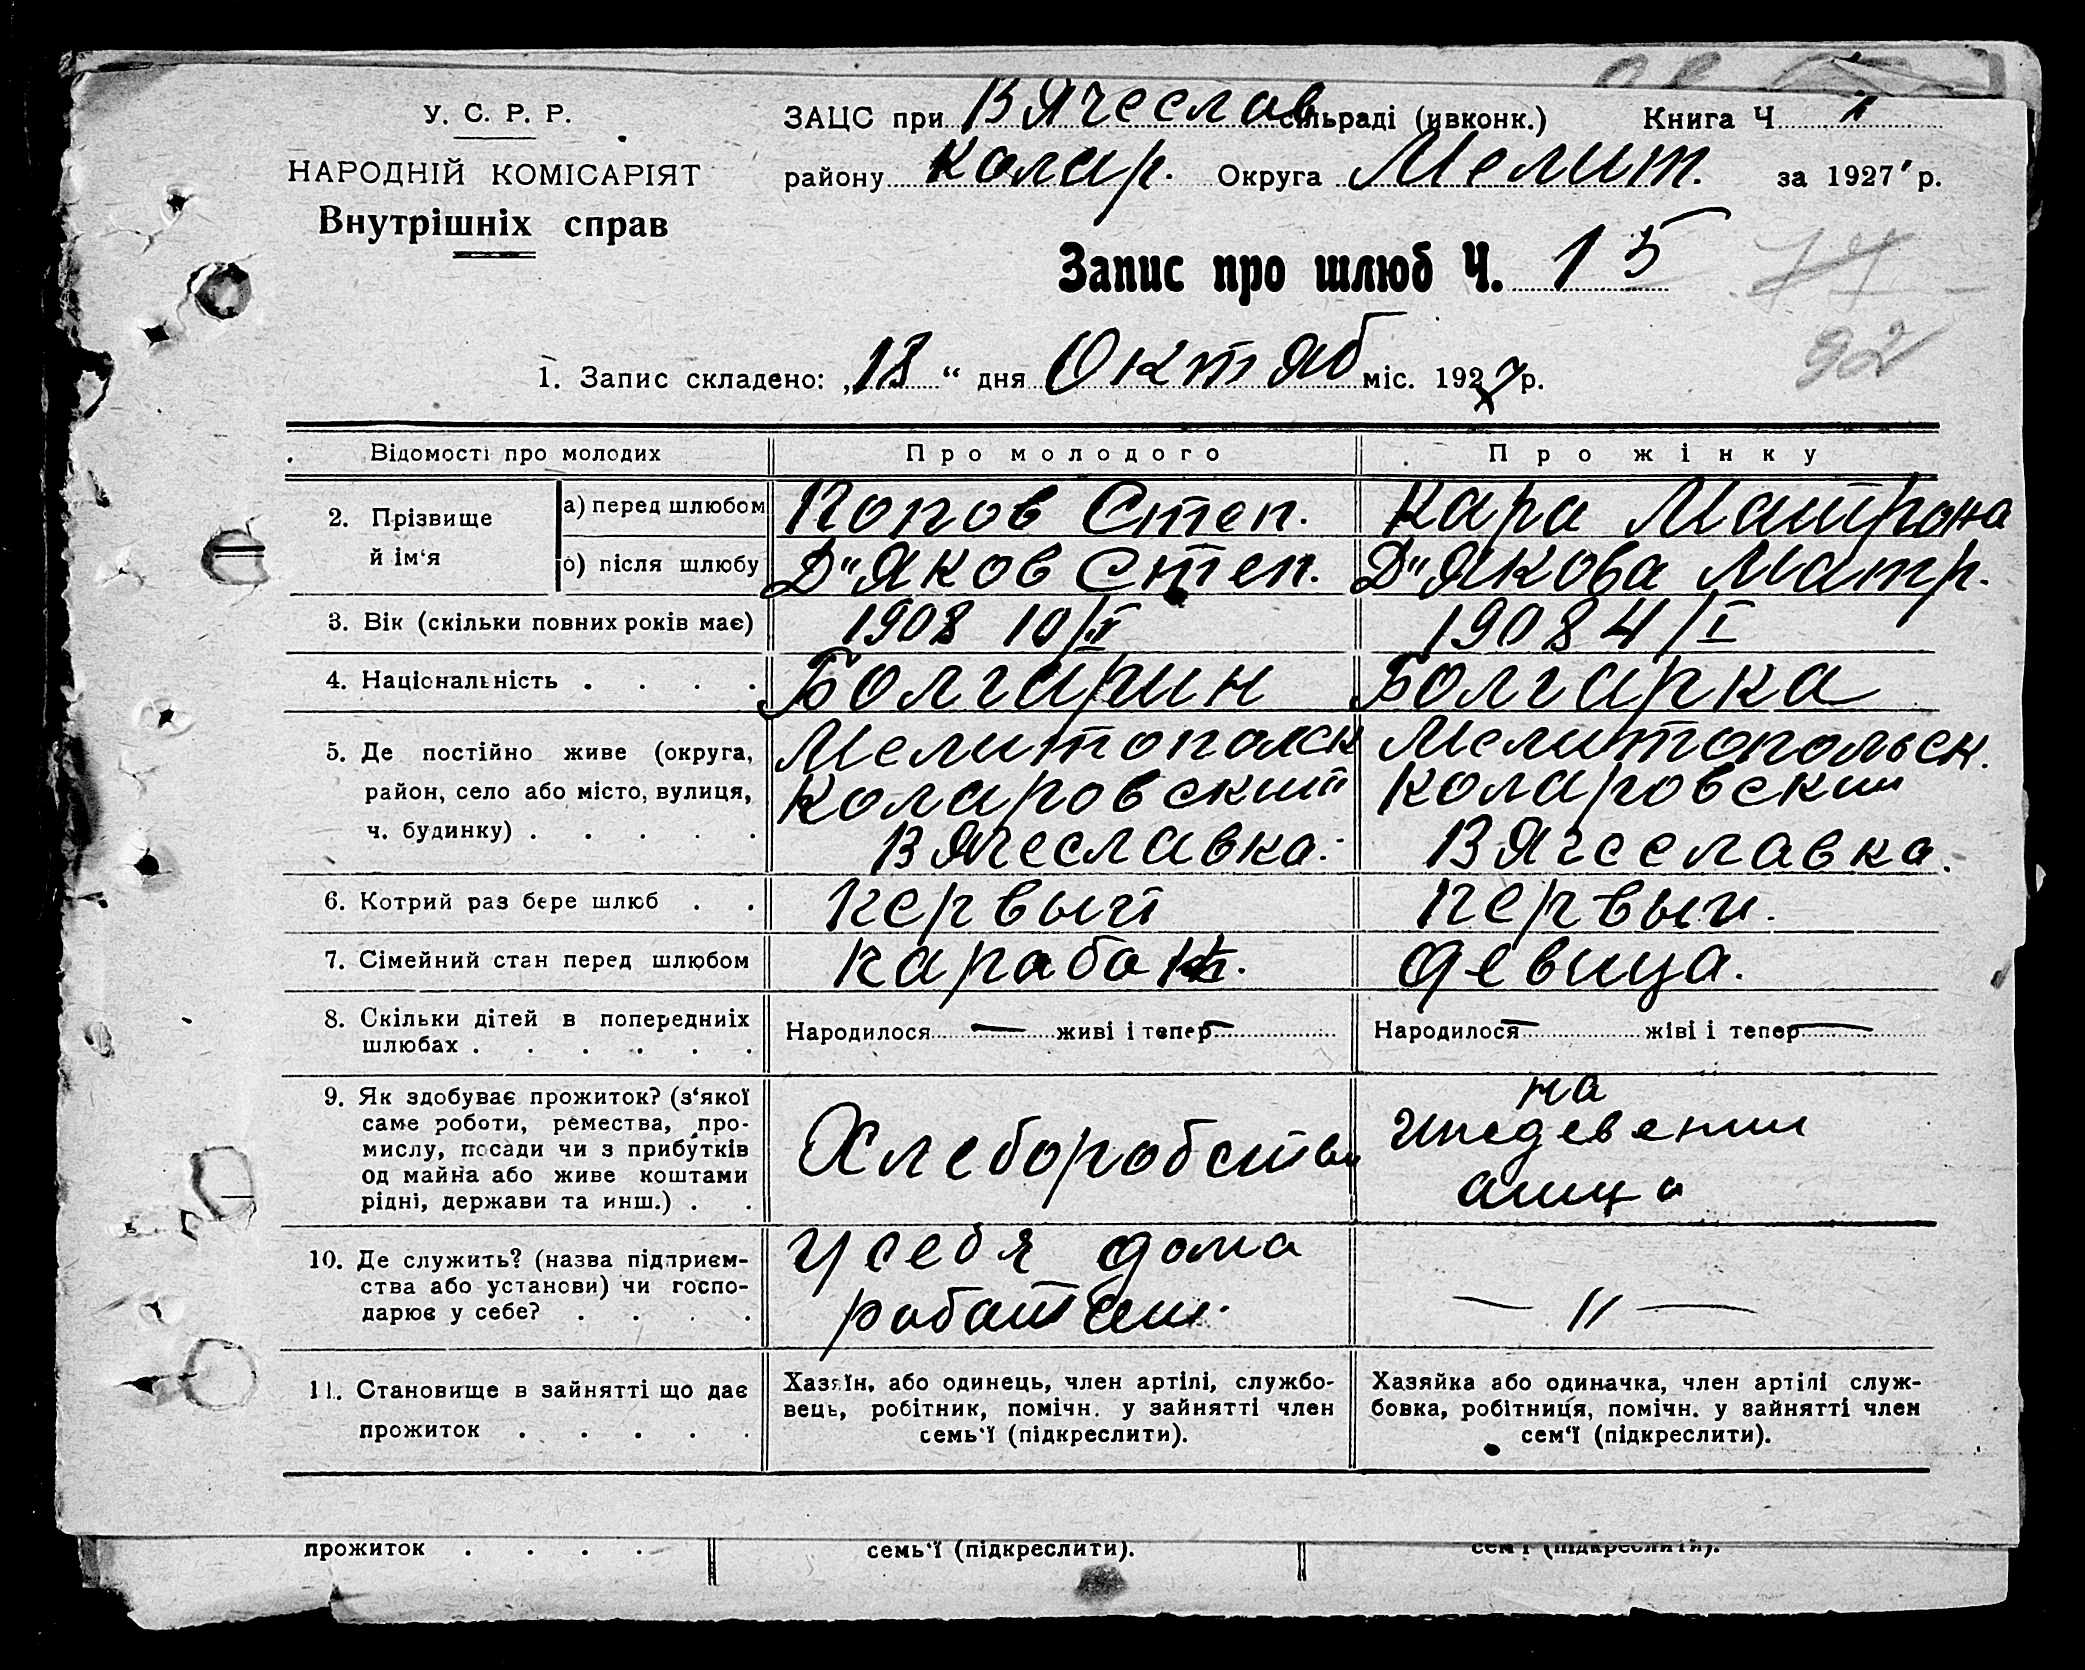 У. С. Р. Р.
НАРОДНІЙ КОМІСАРІЯТ
Внутрішніх справ
ЗАЦС при Вячеслав сільраді (ивконк.) Книга Ч 1
району Колар. Округа Мелит. за 1927 р.
Запис про шлюб Ч. 15
74
92
1. Запис складено: „18“ дня Октяб міс. 1927 р.
Відомості про молодих Про молодого Про жінку
2. Прізвище й ім‘я
а) перед шлюбом Попов Степ. Кара Матрона
б) після шлюбу Д"яков Степ. Д"якова Матр.
3. Вік (скільки повних років має) 1908 10/II 1908 4/I
4. Національність . . . . Болгарин Болгарка
5. Де постійно живе (округа, Мелитополск Мелитопольск.
район, село або місто, вулиця, Коларовский Коларовский
ч. будинку) . . . . . Вячеславка. Вячеславка.
6. Котрий раз бере шлюб . . первый первый.
7. Сімейний стан перед шлюбом девица.
8. Скільки дітей в попередниіх Народилося — живі і тепер — Народилося — жіві і тепер —
шлюбах . . . . . .
9. Як здобуває прожиток? (з‘якої
саме роботи, ремества, про-
мислу, посади чи з прибутків
од майна або живе коштами
рідні, держави та инш.) . .
Хлеборобство
на
отца
10. Де служить? (назва підприєм-
ства або установи) чи госпо-
дарює у себе? . . . .
у себя дома
— " —
11. Становище в зайнятті що дає
прожиток . . . . .
Хазяїн, або одинець, член артілі, службо-
вець, робітник, помічн. у зайнятті член
семь‘ї (підкреслити).
Хазяйка або одиначка, член артілі служ-
бовка, робітниця, помічн. у зайнятті член
сем‘ї (підкреслити).
прожиток . . . . семь‘ї (підкреслити). сем‘ї (підкреслити).